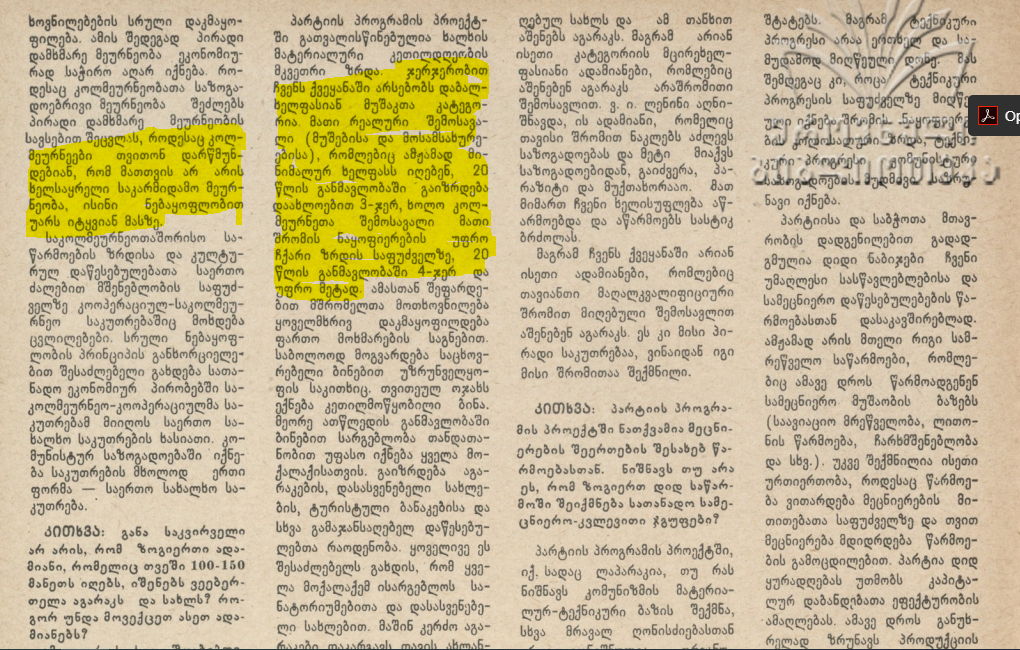 ხოვნილებების სრული დაკმაყო-
ფილება. ამის შედეგად პირადი
დამხმარე მეურნეობა ეკონომიუ-
რად საჭირო აღარ იქნება. რო-
დესაც კოლმეურნეობათა საზოგა-
დოებრივი მეურნეობა შეძლებს
პირადი დამხმარე მეურნეობის
სავსებით შეცვლას, როდესაც კოლ-
მეურნეები თვითონ დარწმუნ-
დებიან, რომ მათთვის არ არის
ხელსაყრელი საკარმიდამო მეურ-
ნეობა, ისინი ნებაყოფლობით
უარს იტყვიან მასზე.
საკოლმეურნეოთაშორისო სა-
წარმოების ზრდისა და კულტუ-
რულ დაწესებულებათა საერთო
ძალებით მშენებლობის საფუძ-
ველზე კოოპერაციულ-საკოლმეუ-
რნეო საკუთრებაშიც მოხდება
ცვლილებები. სრული ნებაყოფ-
ლობის პრინციპის განხორციელე-
ბით შესაძლებელი გახდება სათა-
ნადო ეკონომიურ პირობებში სა-
კოლმეურნეო-კოოპერაციულმა სა-
კუთრებამ მიიღოს საერთო სა-
ხალხო საკუთრების ხასიათი. კო-
მუნისტურ საზოგადოებაში იქნე-
ბა საკუთრების მხოლოდ ერთი
ფორმა — საერთო სახალხო სა-
კუთრება.
ᲙᲘᲗᲮᲕᲐ: განა საკვირველი
არ არის, რომ ზოგიერთი ადა-
მიანი, რომელიც თვეში 100-150
მანეთს იღებს, იშენებს ვეებერ-
თელა აგარაკს და სახლს? რო-
გორ უნდა მოვექცეთ ასეთ ადა-
მიანებს?
პარტიის პროგრამის პროექტ-
ში გათვალისწინებულია ხალხის
მატერიალური კეთილდღეობის
მკვეთრი ზრდა. ჯერჯერობით
ჩვენს ქვეყანაში არსებობს დაბალ-
ხელფასიან მუშაკთა კატეგო-
რია. მათი რეალური შემოსავა-
ლი (მუშებისა და მოსამსახურე-
ებისა), რომლებიც ამჟამად მი-
ნიმალურ ხელფასს იღებენ, 20
წლის განმავლობაში გაიზრდება
დაახლოებით 3-ჯერ, ხოლო კოლ-
მეურნეთა შემოსავალი მათი
შრომის ნაყოფიერების უფრო
ჩქარი ზრდის საფუძველზე, 20
წლის განმავლობაში 4-ჯერ და
უფრო მეტად. ამასთან შეფარდე-
ბით მშრომელთა მოთხოვნილება
ყოველმხრივ დაკმაყოფილდება
ფართო მოხმარების საგნებით.
საბოლოოდ მოგვარდება საცხოვ-
რებელი ბინებით უზრუნველყო-
ფის საკითხიც. თვითეულ ოჯახს
ექნება კეთილმოწყობილი ბინა.
მეორე ათწლედის განმავლობაში
ბინებით სარგებლობა თანდათა-
ნობით უფასო იქნება ყველა მო-
ქალაქისათვის. გაიზრდება აგა-
რაკების, დასასვენებელი სახლე-
ბის, ტურისტული ბანაკებისა და
სხვა გამაჯანსაღებელ დაწესებუ-
ლებთა რაოდენობა. ყოველივე ეს
შესაძლებელს გახდის, რომ ყვე-
ლა მოქალაქემ ისარგებლოს სა-
ნატორიუმებითა და დასასვენებე-
ლი სახლებით. მაშინ კერძო აგა-
რაკები დაკარგავს თავის ახლან-
ღებულ სახლს და ამ თანხით
აშენებს აგარაკს. მაგრამ არიან
ისეთი კატეგორიის მცირეხელ-
ფასიანი ადამიანები, რომლებიც
აშენებენ აგარაკს არაშრომითი
შემოსავლით. ვ. ი. ლენინი აღნი-
შნავდა, ის ადამიანი, რომელიც
თავისი შრომით ნაკლებს აძლევს
საზოგადოებას და მეტი მიაქვს
საზოგადოებიდან, გაიძვერა, პა-
რაზიტი და მუქთახორააო. მათ
მიმართ ჩვენი ხელისუფლება აწ-
არმოებდა და აწარმოებს სასტიკ
ბრძოლას.
მაგრამ ჩვენს ქვეყანაში არიან
ისეთი ადამიანები, რომლებიც
თავიანთი მაღალკვალიფიციური
შრომით მიღებული შემოსავლით
აშენებენ აგარაკს. ეს კი მისი პი-
რადი საკუთრებაა, ვინაიდან იგი
მისი შრომითაა შექმნილი.
ᲙᲘᲗᲮᲕᲐ: პარტიის პროგრა-
მის პროექტში ნათქვამია მეცნი-
ერების შეერთების შესახებ წა-
რმოებასთან. ნიშნავს თუ არა
ეს, რომ ზოგიერთ დიდ საწარ-
მოში შეიქმნება სათანადო სამე-
ცნიერო-კვლევითი ჯგუფები?
პარტიის პროგრამის პროექტში,
იქ, სადაც ლაპარაკია, თუ რას
ნიშნავს კომუნიზმის მატერია-
ლურ-ტექნიკური ბაზის შექმნა,
სხვა მრავალ ღონისძიებასთან
შტატებს. მაგრამ ტექნიკური
პროგრესი არაა ერთხელ და სა-
მუდამოდ მიღწეული დონე. მას
შემდეგაც კი, როცა ტექნიკური
პროგრესის საფუძველზე მიღწე-
ული იქნება შრომის ნაყოფიერე-
ბის
ზრდა, ტექნი-
კური პროგრესი კომუნისტურ
საზოგადოებას მუდმივი
ნავი იქნება.
პარტიისა და საბჭოთა მთავ-
რობის დადგენილებით გადად-
გმულია დიდი ნაბიჯები ჩვენი
უმაღლესი სასწავლებლებისა და
სამეცნიერო დაწესებულებების წა-
რმოებასთან დასაკავშირებლად.
ამჟამად არის მთელი რიგი სამ-
რეწველო საწარმოები, რომლე-
ბიც ამავე დროს წარმოადგენენ
სამეცნიერო მუშაობის ბაზებს
(საავიაციო მრეწველობა, ლითო-
ნის წარმოება, ჩარხმშენებლობა
და სხვ.). უკვე შექმნილია ისეთი
ურთიერთობა, როდესაც წარმოე-
ბა ვითარდება მეცნიერების მი-
თითებათა საფუძველზე და თვით
მეცნიერება მდიდრდება წარმოე-
ბის გამოცდილებით. პარტია დიდ
ყურადღებას უთმობს კაპიტა-
ლურ დაბანდებათა ეფექტურობის
ამაღლებას. ამავე დროს განუხ-
რელად ზრუნავს პროდუქციის
Op